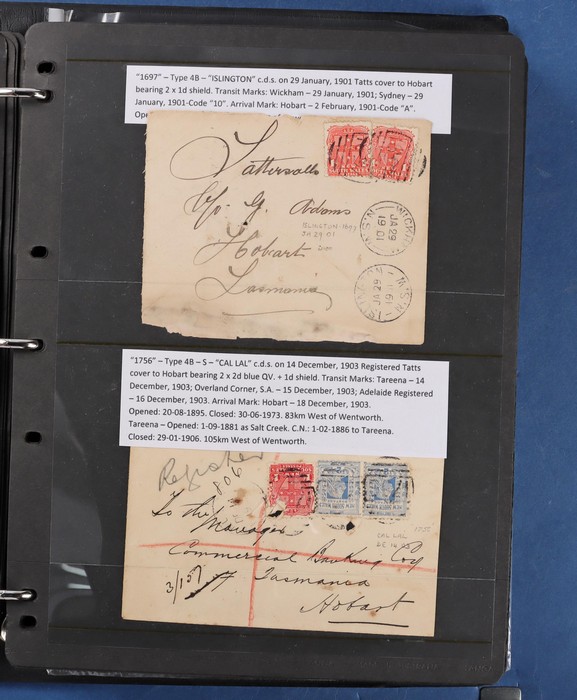 "1697" – Type 4B – "ISLINGTON" c.d.s. on 29 January, 1901 Tatts cover to Hobart
bearing 2 x 1d shield. Transit Marks: Wickham – 29 January, 1901; Sydney – 29
January, 1901-Code "10". Arrival Mark: Hobart – 2 February, 1901-Code "A".
Tattersalls
C/o G. Adams
ISLINGTON 1697
JA 29-01
Hobart
Tasmania
JA 29
19 01
N.S.W
JA 29
19
N.S.W
"1756" – Type 4B – S – "CAL LAL" c.d.s. on 14 December, 1903 Registered Tatts
cover to Hobart bearing 2 x 2d blue QV. + 1d shield. Transit Marks: Tareena – 14
December, 1903; Overland Corner, S.A. – 15 December, 1903; Adelaide Registered
– 16 December, 1903. Arrival Mark: Hobart – 18 December, 1903.
Opened: 20-08-1895. Closed: 30-06-1973. 83km West of Wentworth.
Tareena – Opened: 1-09-1881 as Salt Creek. C.N.: 1-02-1886 to Tareena.
Closed: 29-01-1906. 105km West of Wentworth.
806
To the
Manager
CAL LAL
Commercial Banking Coy
of Tasmania
Hobart